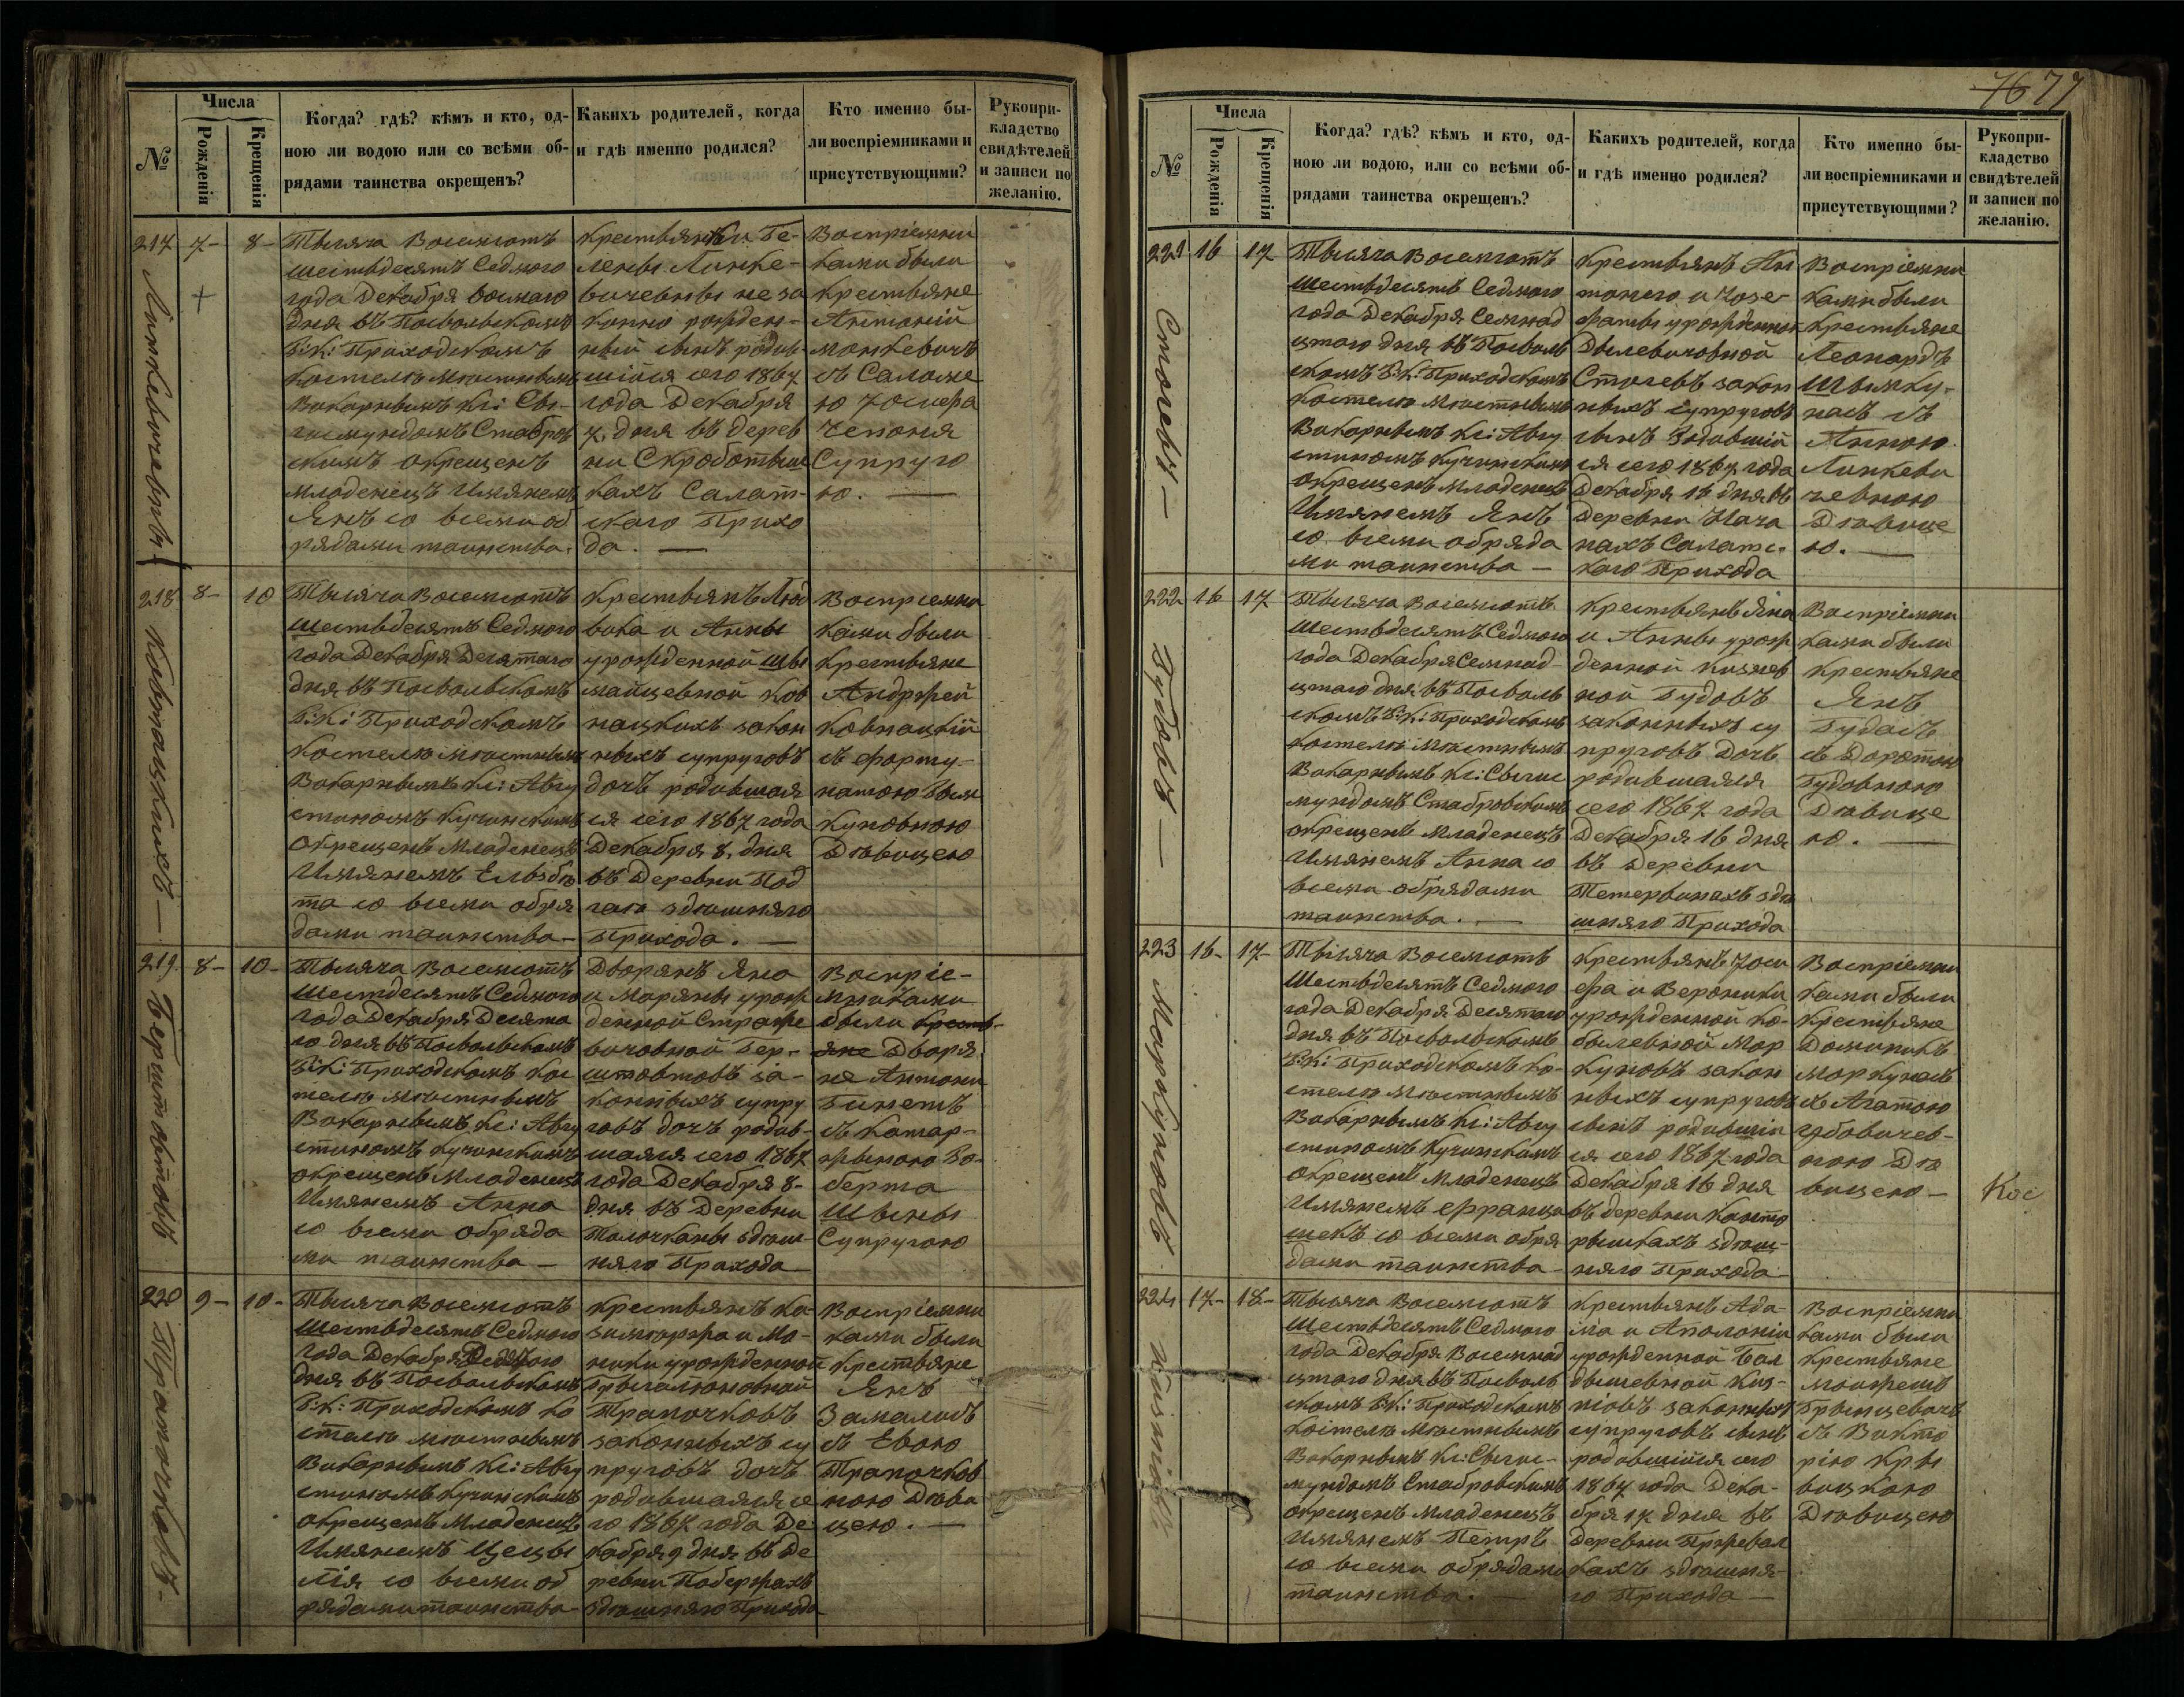 Числа
№
Рожденія
Крещенія
Когда? гдѣ? кѣмъ и кто, од-
ною ли водою или со всѣми об-
рядами таинства окрещенъ?
Какихъ родителей, когда
и гдѣ именно родился?
Кто именно бы-
ли воспріемниками и
присутствующими?
Рукопри-
кладство
свидѣтелей
и записи по
желанію.
217
7-
8-
Линкевичевны
Тысяча восемсотъ
шестьдесятъ седмого
года Декабря восмаго
дня въ Посвольскомъ
Р: К: Приходскомъ
костелѣ мѣстнымъ
Викарнымъ Кс: Сви-
гмундомъ Стабров
скимъ окрещенъ
младенецъ Имянемъ
Янъ со всеми об
рядами таинства.
Крестьянки Ге-
лены Линке-
вичевны не за
конно рожден-
ный сынъ родив
шійся сего 1867
года Декабря
7. дня въ дерев
ни Скроботыш
кахъ Салат-
ского Прихо
да. —
Воспріемни
ками были
крестьяне
Антоній
Монкевичъ
съ Саломе
ю Іосифа
Чепоня
Супруго
ю. —
218
8-
10
Ковнацкихъ —
Тысяча восемсотъ
шестьдесятъ седмого
года Декабря Десятаго
дня въ Посвольскомъ
Р: К: Приходскомъ
костелѣ мѣстнымъ
Викарнымъ Кс: Авгу
стиномъ Кучинскимъ
окрещенъ младенецъ
Имянемъ Ельзбѣ
та со всеми обря
дами таинства —
Крестьянъ Люд
вика и Анны
урожденной Шы
майцевной Ков
нацкихъ закон
ныхъ супруговъ
дочь родившая
ся сего 1867 года
Декабря 8. дня
въ Деревни Под
гаю здѣшняго
Прихода. —
Воспріемни
ками были
крестьяне
Андржей
Ковнацкій
съ Форту-
натою Бым
куновною
Дѣвицею
219
8-
10-
Берштовтовъ
Тысяча восемсотъ
шестдесятъ седмого
года Декабря Десята
го дня въ Посвольскомъ
Р: К: Приходскомъ кос
телѣ мѣстнымъ
Викарнымъ Кс: Авгу
стиномъ Кучинскимъ
окрещенъ младенецъ
Имянемъ Анна
со всеми обряда
ми таинства —
Дворянъ Яна
и Марянны урож
денной Страже
вичовной Бер-
штовтовъ за-
конныхъ супру
говъ дочь родив-
шаяся сего 1867
года Декабря 8-
дня въ Деревни
Толочканы здѣш-
няго Прихода
Воспріе-
мниками
были крестъ-
яне Дворя
не Антони
Бинетъ
съ Катар-
жыною Ро-
берта
Шыены
Супругою
220
9-
10-
Трапочковъ-
Тысяча восемсотъ
шестьдесятъ седмого
года Декабря Десятого
дня въ Посвольскомъ
Р: К: Приходскомъ ко
стелѣ мѣстнымъ
Викарнымъ Кс: Авгу
стиномъ Кучинскимъ
окрещенъ младенецъ
Имянемъ Цецы
лія со всеми об
рядами таинства-
Крестьянъ Ка-
зимержа и Мо-
ники урожденной
Грыгалюновной
Трапочковъ
законныхъ су
пруговъ дочь
родившаяся се
го 1867 года Де
кабря 9 дня въ Де
ревни Побержахъ
здѣшняго Прихода
Воспріемни
ками были
крестьяне
Янъ
Замалисъ
съ Евою
Трапочков
ною Дѣви
цею. —
76 77
Числа
№
Рожденія
Крещенія
Когда? гдѣ? кѣмъ и кто, од-
ною ли водою, или со всѣми об-
рядами таинства окрещенъ?
Какихъ родителей, когда
и гдѣ именно родился?
Кто именно бы-
ли воспріемниками и
присутствующими?
Рукопри-
кладство
свидѣтелей
и записи по
желанію.
221
16
17
Стогевъ —
Тысяча восемсотъ
шестьдесятъ седмого
года Декабря семнад
цтаго дня въ Посволь
скомъ Р: К: Приходскомъ
костелѣ мѣстнымъ
Викарнымъ Кс: Авгу
стиномъ Кучинскимъ
окрещенъ младенецъ
Имянемъ Янъ
со всеми обряда
ми таинства —
Крестьянъ Ан
тонего и Юзе-
фаты урожденной
Дылевичовной
Стогевъ закон
ныхъ супруговъ
сынъ родившій
ся сего 1867 года
Декабря 16 дня въ
Деревни Нача
нахъ Салатс-
кого Прихода
Воспріемни
ками были
крестьяне
Леонардъ
Шымку-
насъ съ
Анною
Линкеви
чевною
Дѣвице
ю. —
222
16
17
Будовъ —
Тысяча восемсотъ
шестьдесятъ седмого
года Декабря семнад-
цтаго дня въ Посволь
скомъ Р: К: Приходскомъ
костелѣ мѣстнымъ
Викарнымъ Кс: Свигис
мундомъ Стабровскимъ
окрещенъ младенецъ
Имянемъ Анна со
всеми обрядами
таинства. —
Крестьянъ Яна
и Анны урож
денной Кизнев
ной Будовъ
законныхъ су
пруговъ дочь
родившаяся
сего 1867 года
Декабря 16 дня
въ Деревни
Тетервинахъ здѣ
шняго Прихода
Воспріемни
ками были
крестьяне
Янъ
Будасъ
съ Доротою
Будовною
Дѣвице
ю. —
223
16-
17-
Маркуновъ
Тысяча восемсотъ
шестьдесятъ седмого
года Декабря Десятого
дня въ Посвольскомъ
Р: К: Приходскомъ ко-
стелѣ мѣстнымъ
Викарнымъ Кс: Авгу
стиномъ Кучинскимъ
окрещенъ младенецъ
Имянемъ Францы
шекъ со всеми обря
дами таинства —
Крестьянъ Іоси
фа и Вероники
урожденной Ко-
былевной Мар
куновъ закон
ныхъ супруговъ
сынъ родившій
ся сего 1867 года
Декабря 16 дня
въ деревни Канто
рышкахъ здѣш-
няго Прихода
Воспріемни
ками были
крестьяне
Доминикъ
Маркунасъ
съ Агатою
Гдовичев-
ною Дѣ
вицею —
Кос
224
17-
18-
Кизніовъ
Тысяча восемсотъ
шестьдесятъ седмого
года Декабря восемнад
цтаго дня въ Посволь
скомъ Р: К: Приходскомъ
костелѣ мѣстнымъ
Викарнымъ Кс: Свигис-
мундомъ Стабровскимъ
окрещенъ младенецъ
Имянемъ Петръ
со всеми обрядами
таинства. —
Крестьянъ Ада-
ма и Аполоніи
урожденной Бал
дышевной Киз-
ніовъ законныхъ
супруговъ сынъ
родившійся сего
1867 года Дека-
бря 17 дня въ
Деревни Пржевал
кахъ здѣшня-
го Прихода —
Воспріемни
ками были
крестьяне
Монжешъ
Грынцевичъ
съ Викто
рію Кры
вицкою
Дѣвицею